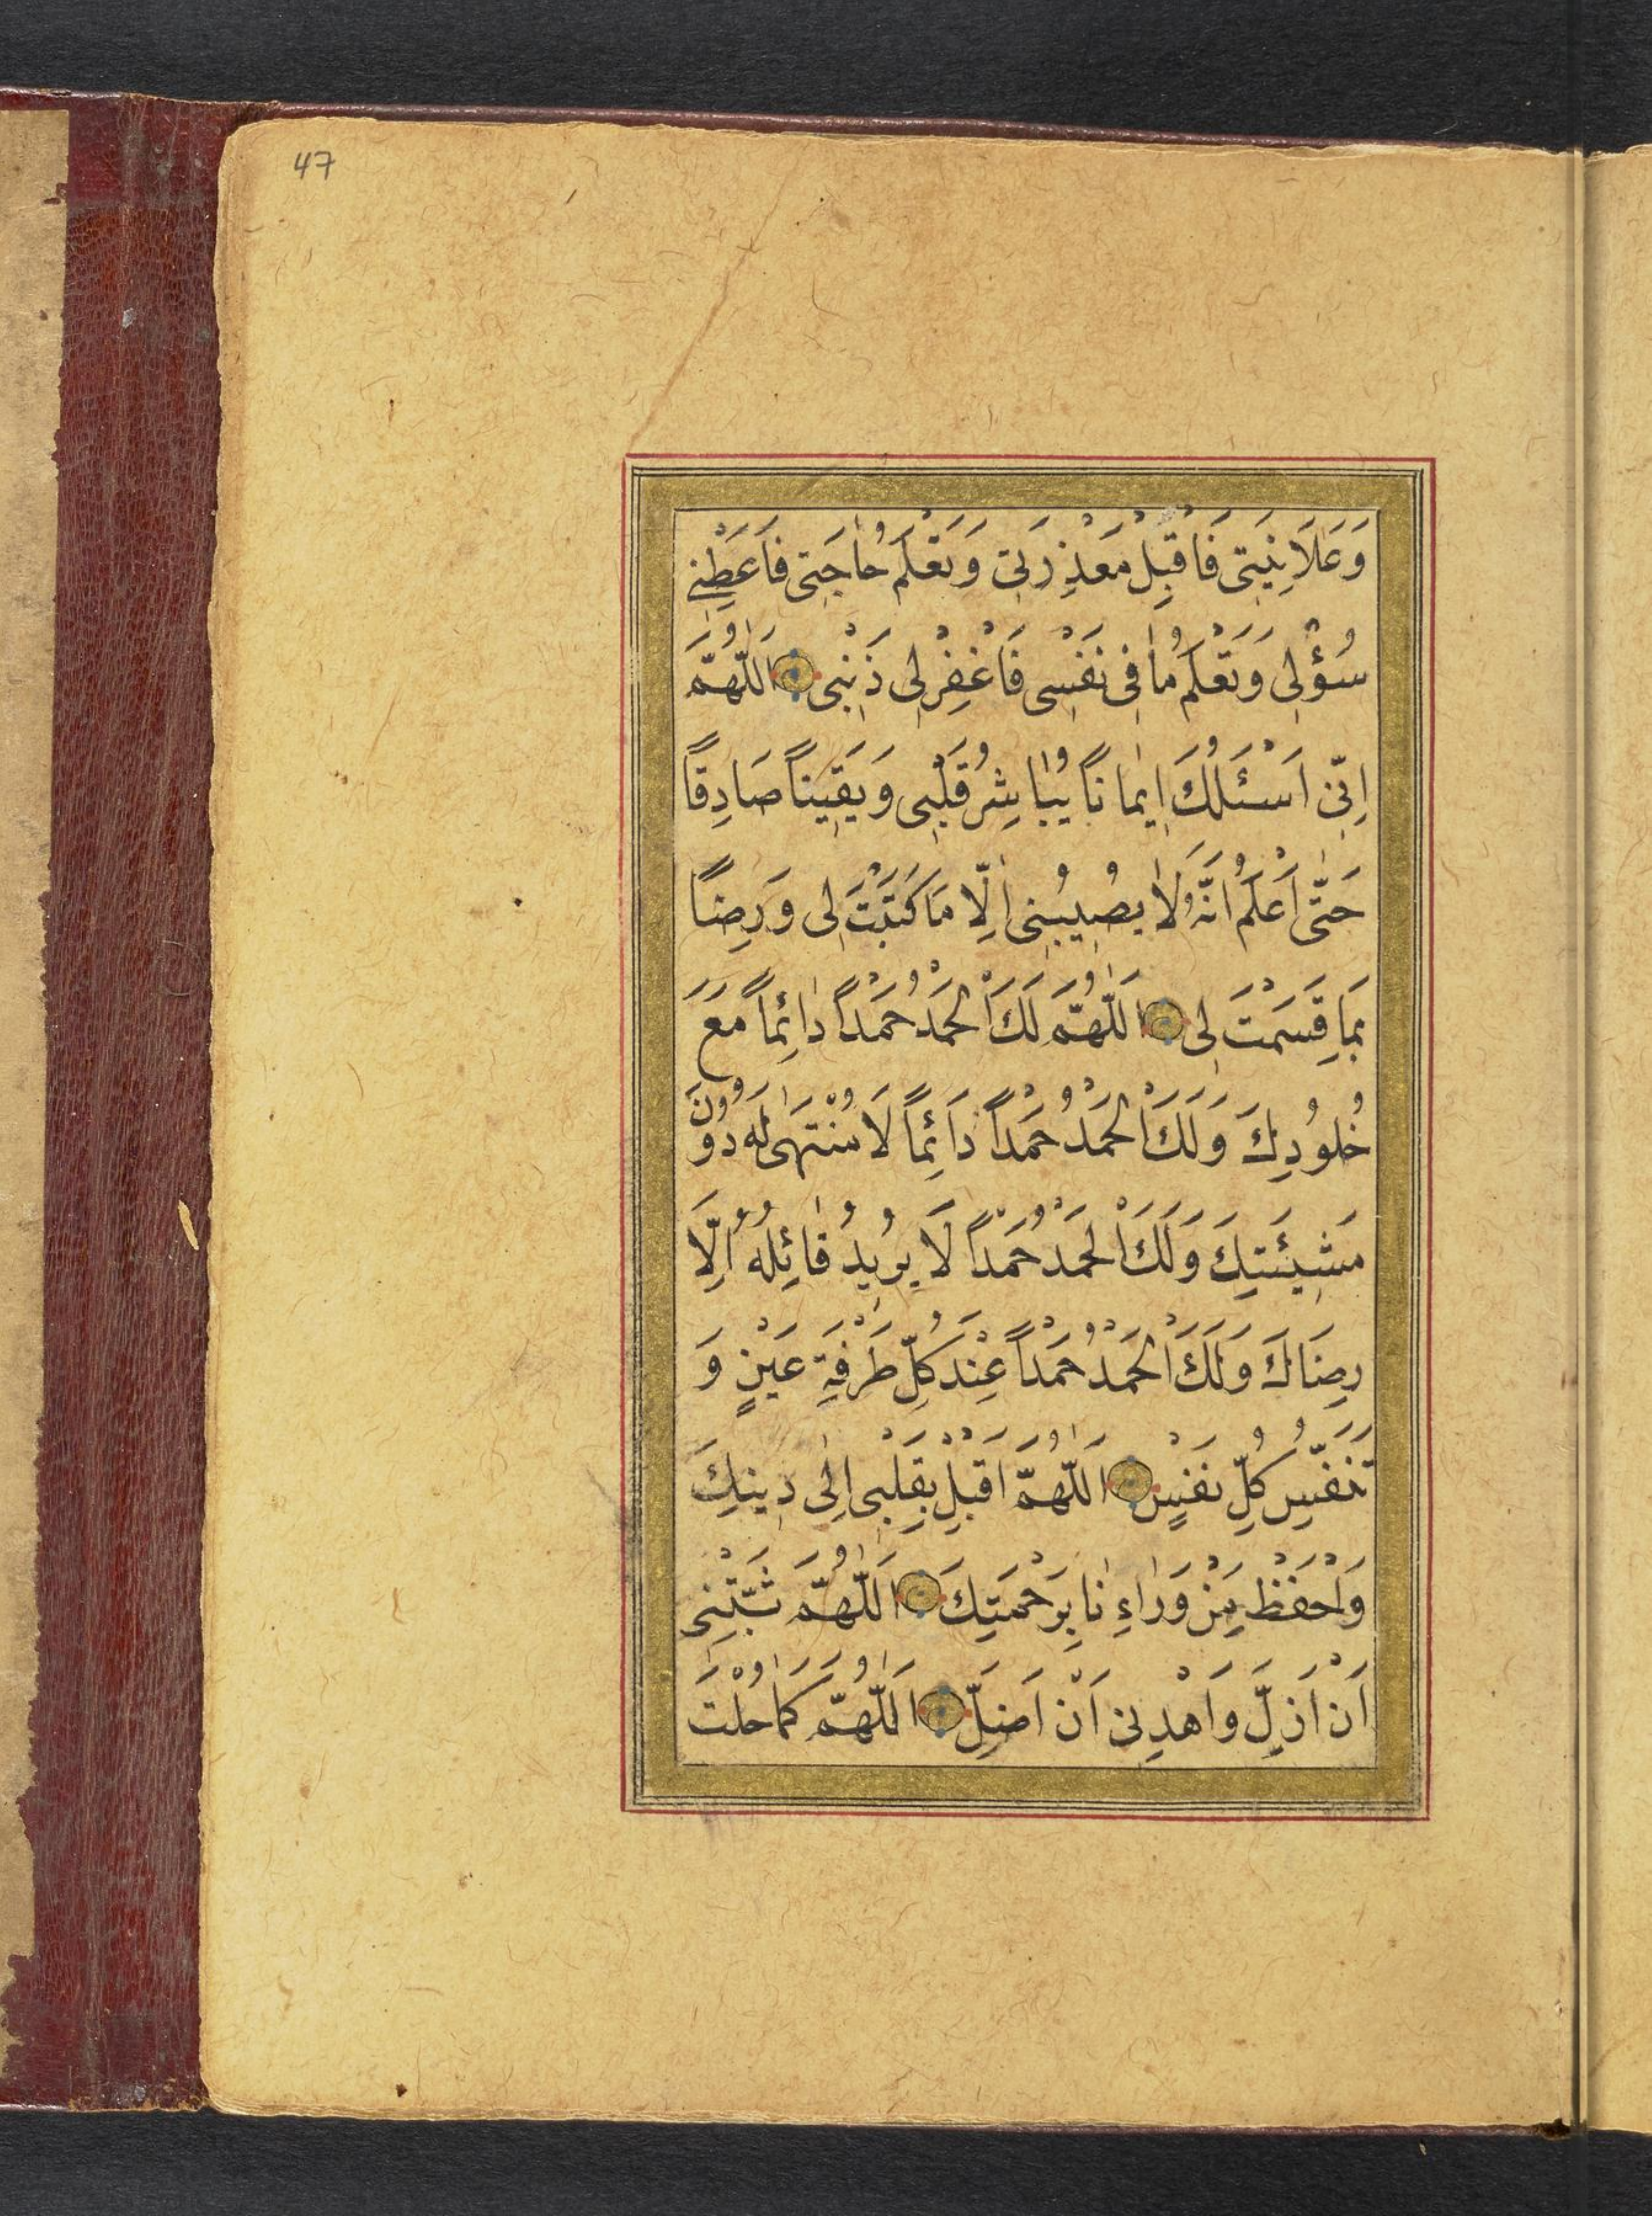 47
وَعَلَانِيَتِى فَاقْبِلْ مَعْذِرَتِى وَتَعْلَمُ حَاجَتِى فَاَعْطِنِى
سُؤْلِى وَتَعْلَمُ مَا فِى نَفْسِى فَاغْفِرْلِى ذَنْبِى اَللّٰهُمَّ
اِنِّى اَسْئَلُكَ اِيمَانًا يُبَاشِرُ قَلْبِى وَيَقِينًا صَادِقًا
حَتّٰى اَعْلَمُ اَنَّهُ لَا يُصِيبُنِى اِلَّا مَا كَتَبْتَ لِى وَرِضًا
بِمَا قَسَمْتَ لِى اَللّٰهُمَّ لَكَ الْحَمْدُ حَمْدًا دَائِمًا مَعَ
خُلُودِكَ وَلَكَ الْحَمْدُ حَمْدًا دَائِمًا لَا مُنْتَهٰى لَهُ دُونَ
مَشِيئَتِكَ وَلَكَ الْحَمْدُ حَمْدًا لَا يُرِيدُ قَائِلُهُ اِلَّا
رِضَاكَ وَلَكَ الْحَمْدُ حَمْدًا عِنْدَ كُلِّ طَرْفَةِ عَيْنٍ وَ
تَنَفُّسِ كُلِّ نَفْسٍ اَللّٰهُمَّ اَقْبِلْ بِقَلْبِى اِلٰى دِينِكَ
وَاحْفَظْ مِنْ وَرَاءِنَا بِرَحْمَتِكَ اَللّٰهُمَّ ثَبِّتْنِى
اَنْ اَزِلَّ وَاهْدِنِى اَنْ اَضِلَّ اَللّٰهُمَّ كَمَا حُلْتَ